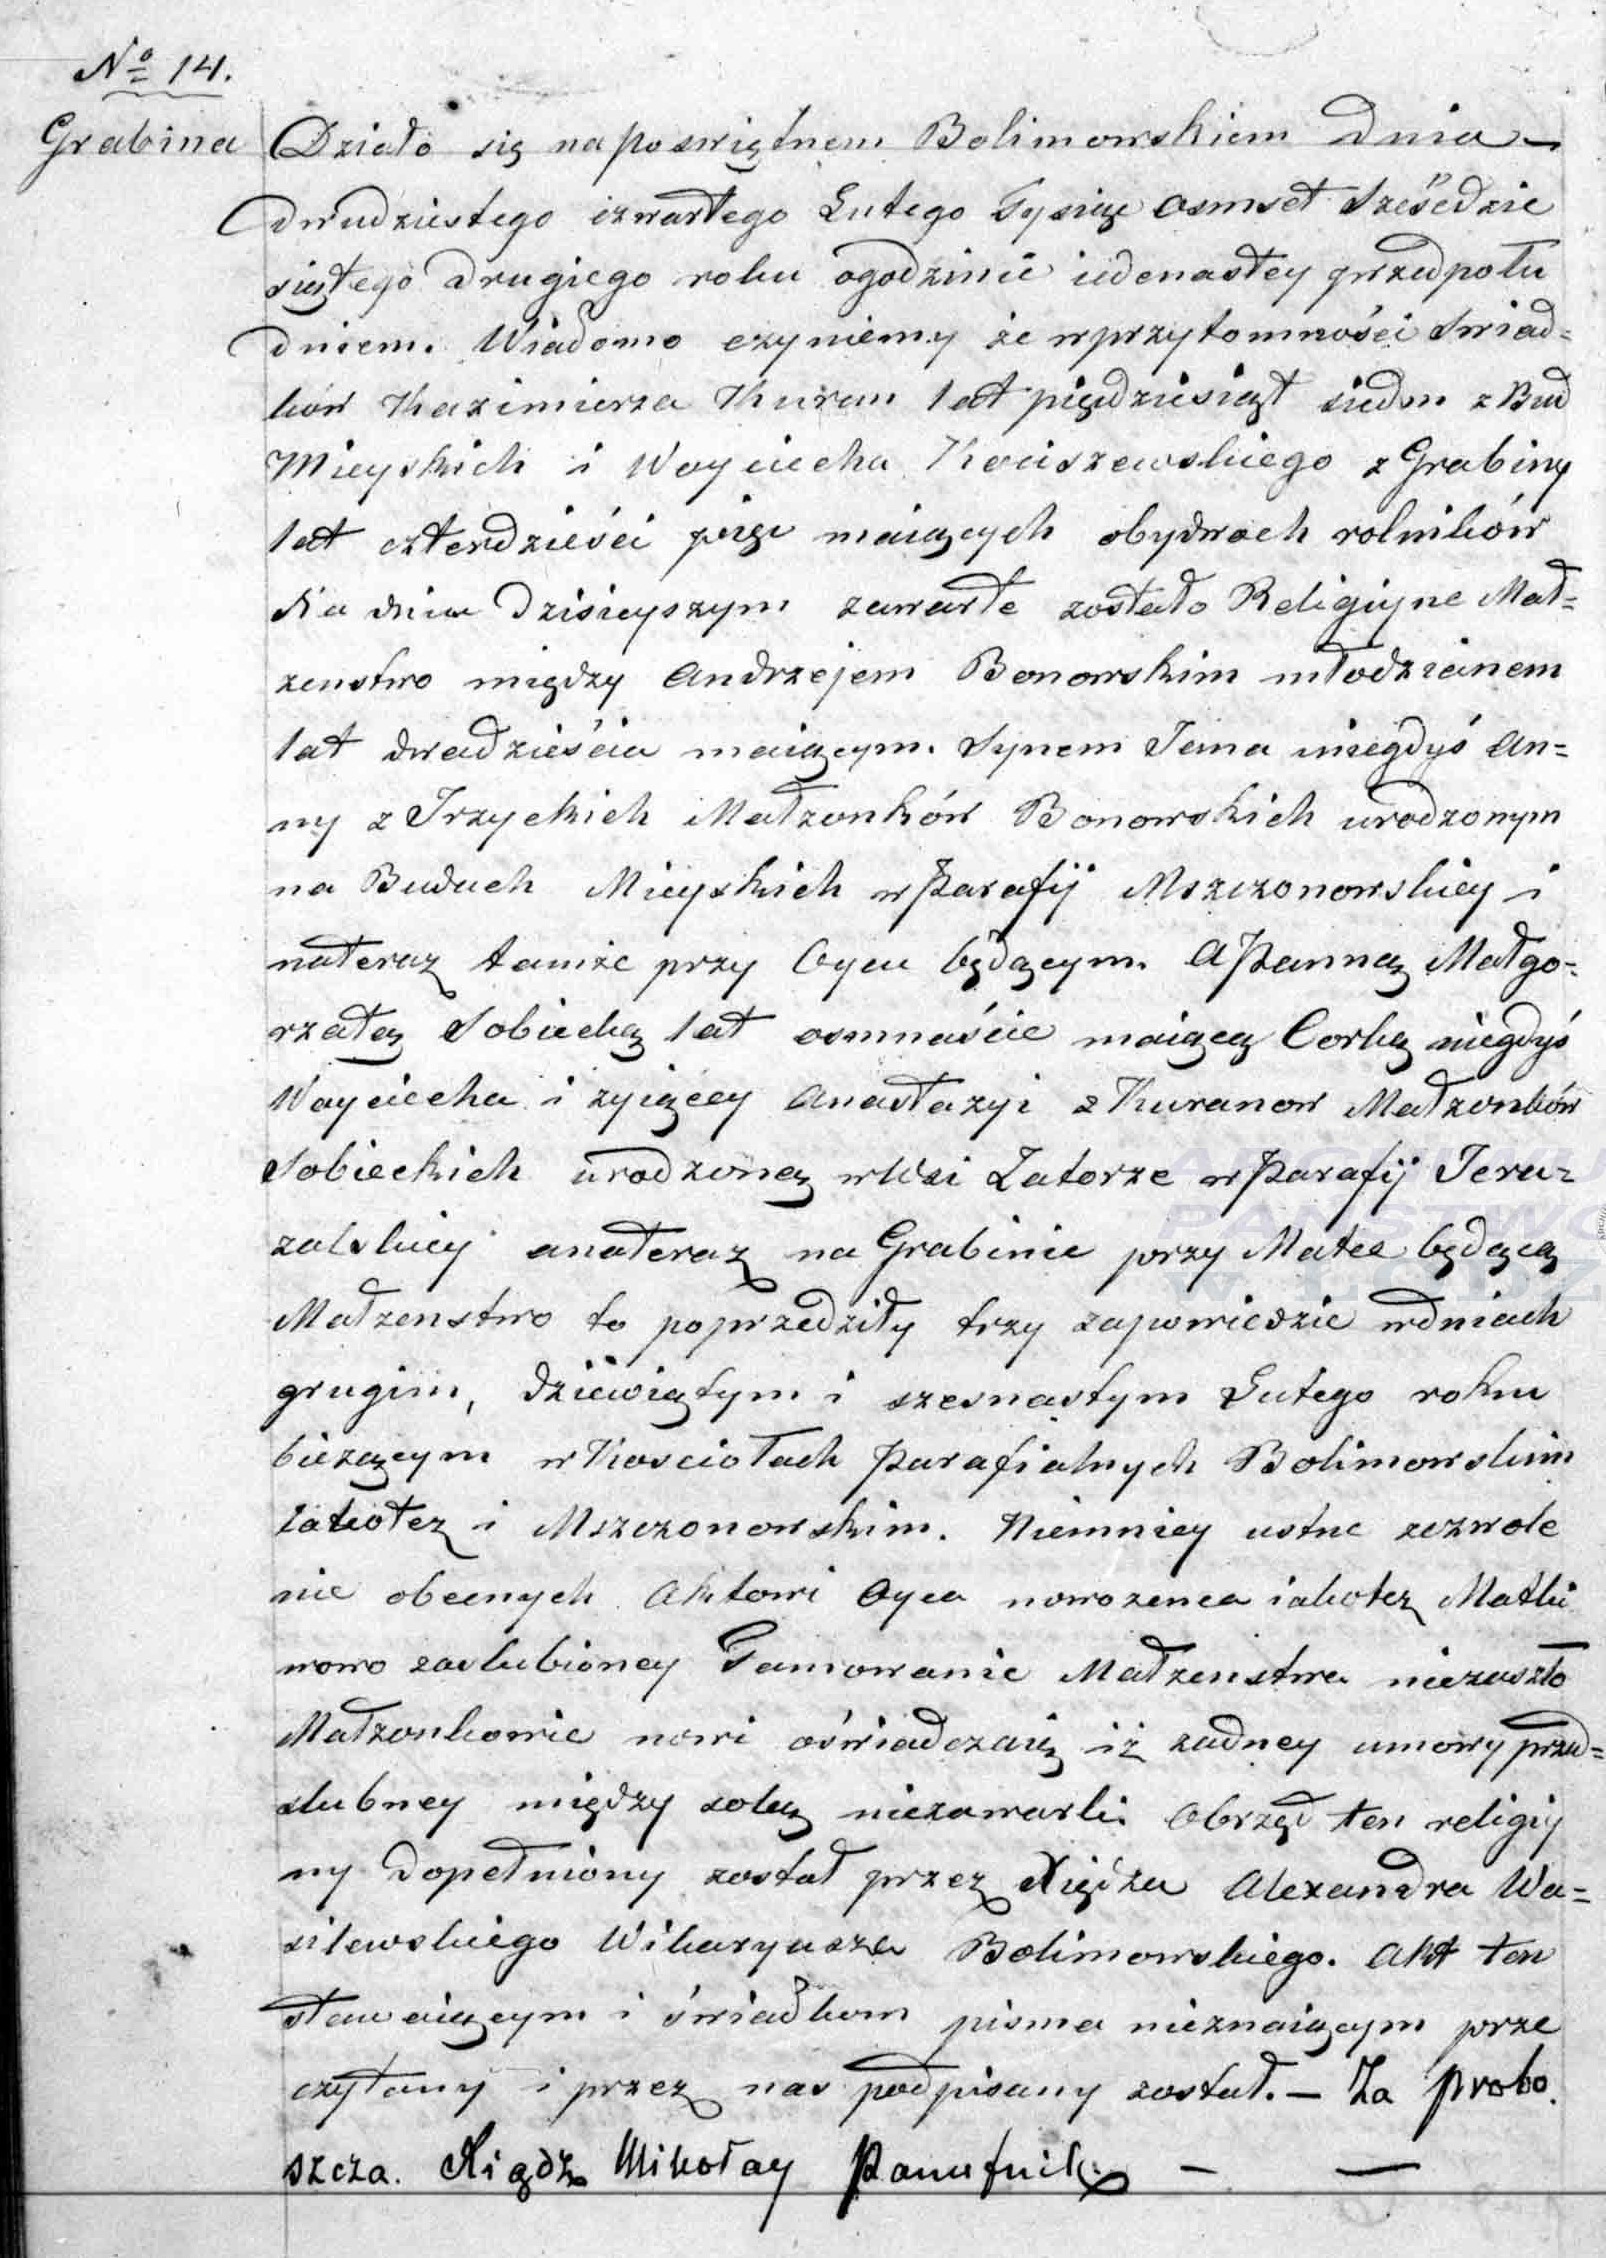 No 14.
Grabina
Działo się na poswiętnem Bolimowskiem dnia —
dwudziestego czwartego Lutego Tysiąc osmset sześćdzie
siątego drugiego roku ogodzinie iedenastey przedpołu
dniem. Wiadomo czyniemy że wprzytomności swiad=
ków Kazimierza Kuran lat piędziesiąt siedm z Bud
Mieyskich i Woyciecha Kociszewskiego z Grabiny
lat czterdzieści pięc maiących obydwoch rolników
Na dniu dzisieyszym zawarte zostało Religiyne Mał=
zenstwo między Andrzejem Bonowskim młodzianem
lat dwadzieścia maiącym. Synem Jana niegdyś An=
ny z Trzyckich Małzonków Bonowskich urodzonym
na Budach Mieyskich w Parafij Mszczonowskiey i
nateraz tamże przy Oycu będącym. A Panną Małgo=
rzatą Sobiecką lat osmnaście maiącą Corką niegdyś
Woyciecha i zyiącey Anastazyi z Kuranow Małzonków
Sobieckich urodzoną w Wsi Zatorze w Parafij Jeru=
zalskiey anateraz na Grabinie przy Matce będącą
Małzenstwo to poprzedziły trzy zapowiedzie wdniach
grugim, dziéwiątym i szesnastym Lutego roku
biezącym w Kosciołach Parafialnych Bolimowskim
iakotez i Mszczonowskim. Niemniey ustne zezwole
nie obecnych Aktowi Oyca nowozenca iakotez Matki
nowo zaslubioney Tamowanie Małzenstwa niezaszło
Małzonkowie nowi oświadczaią iż zadney umowy przed=
slubney między sobą niezawarli. Obrzęd ten religiy
ny dopełniony został przez Xiędza Alexandra Wa=
silewskiego Wikaryusza Bolimowskiego. Akt ten
stawaiącym i świadkom pisma nieznaiącym prze
czytany i przez nas podpisany został. — Za probo.
szcza. Xiądz Mikołay Panufnik — —